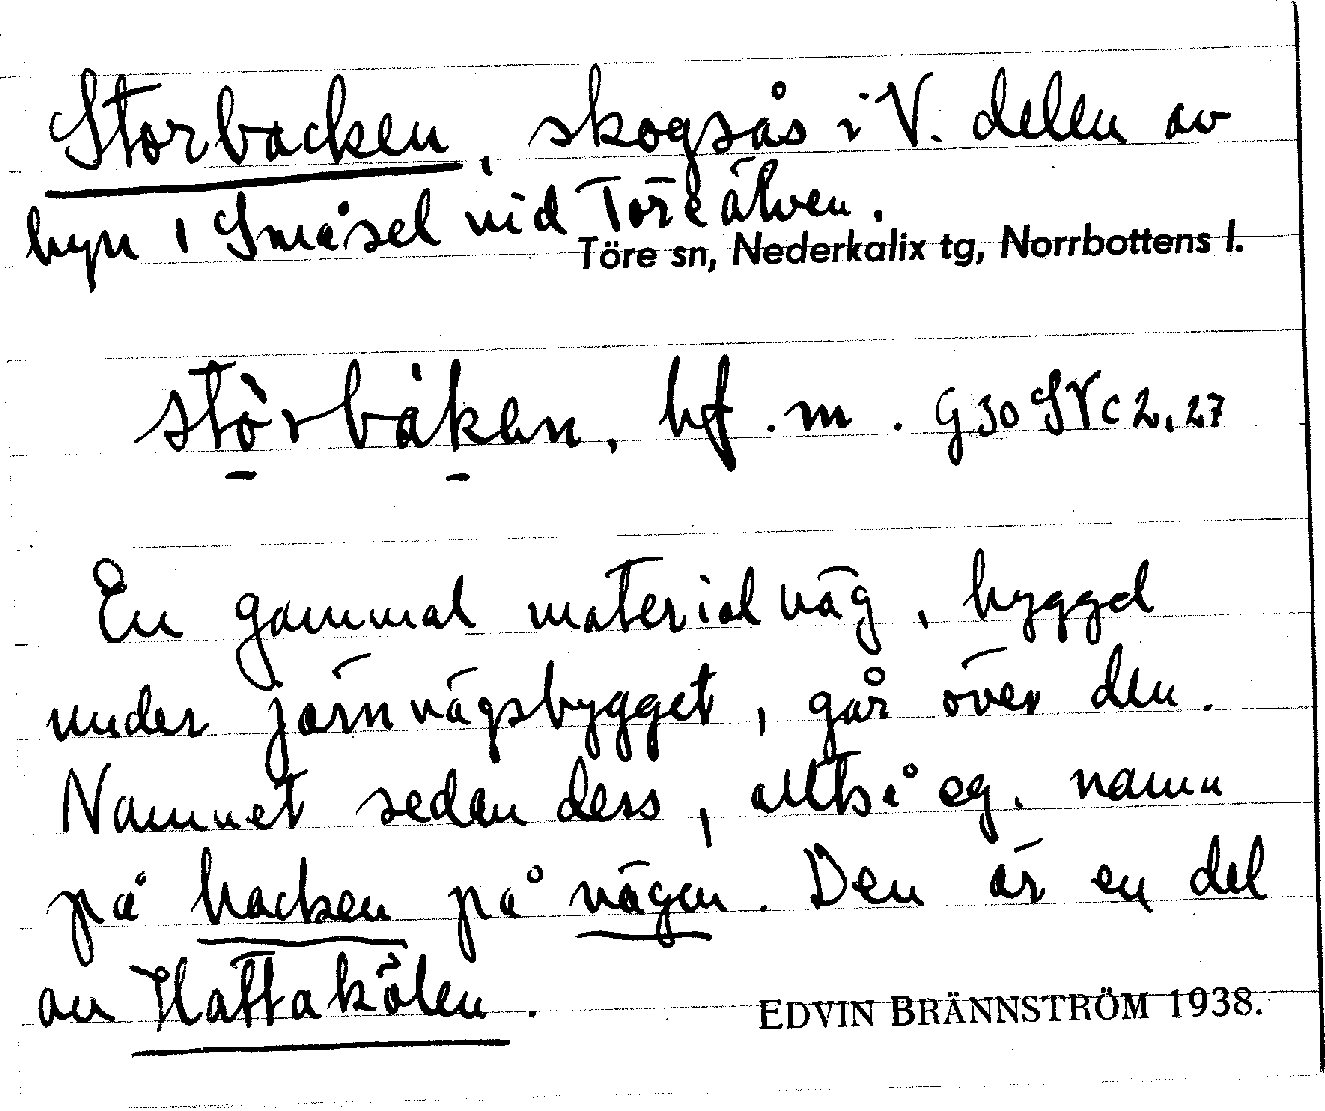 Storbacken, skogsås i V. delen av
byn i Småsel vid Töre älven.
Töre sn, Nederkalix tg, Norrbottens l.
stòrbàken, bf. m. G 30 SV c 2, 27
En gammal materialväg, byggd
under järnvägsbygget, går över den.
Namnet sedan dess, alltså eg. namn
på backen på vägen. Den är en del
av Hattakölen.
EDVIN BRÄNNSTRÖM 1938.